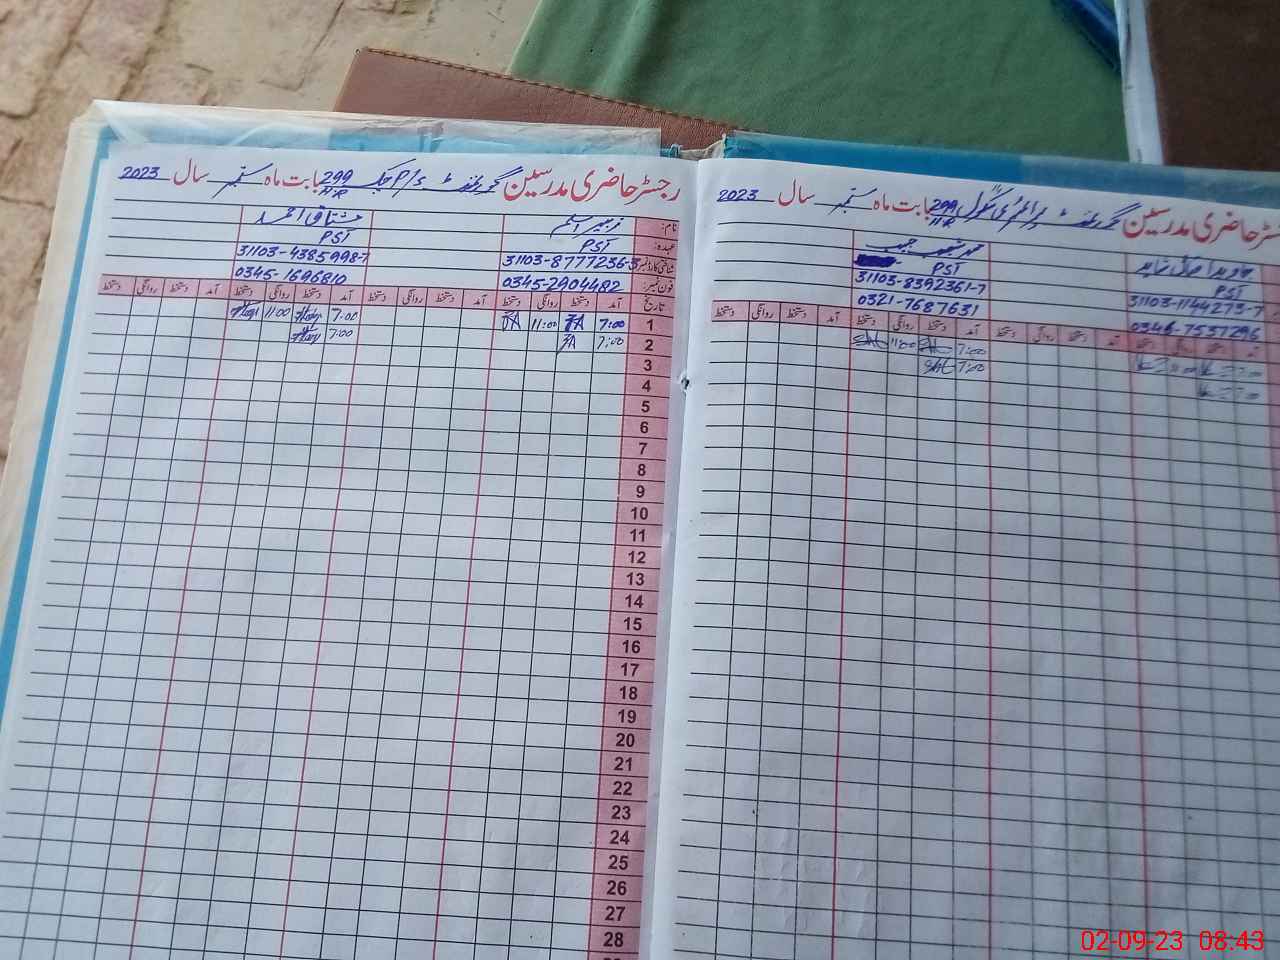 رجسٹر حاضری مدرسین گورنمنٹ P/S چک 299 H.R بابت ماہ ستمبر سال 2023
نام: زبیر اسلم مشتاق احمد
عہدہ: PST PST
شناختی کارڈ نمبر 31103-8777236-3 31103-4385998-7
فون نمبر: 0345-2904482 0345-1696810
تاریخ آمد دستخط روانگی دستخط آمد دستخط روانگی دستخط آمد دستخط روانگی دستخط آمد دستخط روانگی دستخط
1 7:00 11:00 7:00 11:00
2 7:00 7:00
3
4
5
6
7
8
9
10
11
12
13
14
15
16
17
18
19
20
21
22
23
24
25
26
27
28
رجسٹر حاضری مدرسین گورنمنٹ پرائمری سکول 299 H.R بابت ماہ ستمبر سال 2023
جاوید شاہد
PST PST
31103-1144273-7 31103-8392361-7
0346-7537296 0321-7687631
آمد دستخط روانگی دستخط آمد دستخط روانگی دستخط آمد دستخط روانگی دستخط آمد دستخط روانگی دستخط
7:00 11:00 7:00 11:00
7:00 7:00
02-09-23 08:43